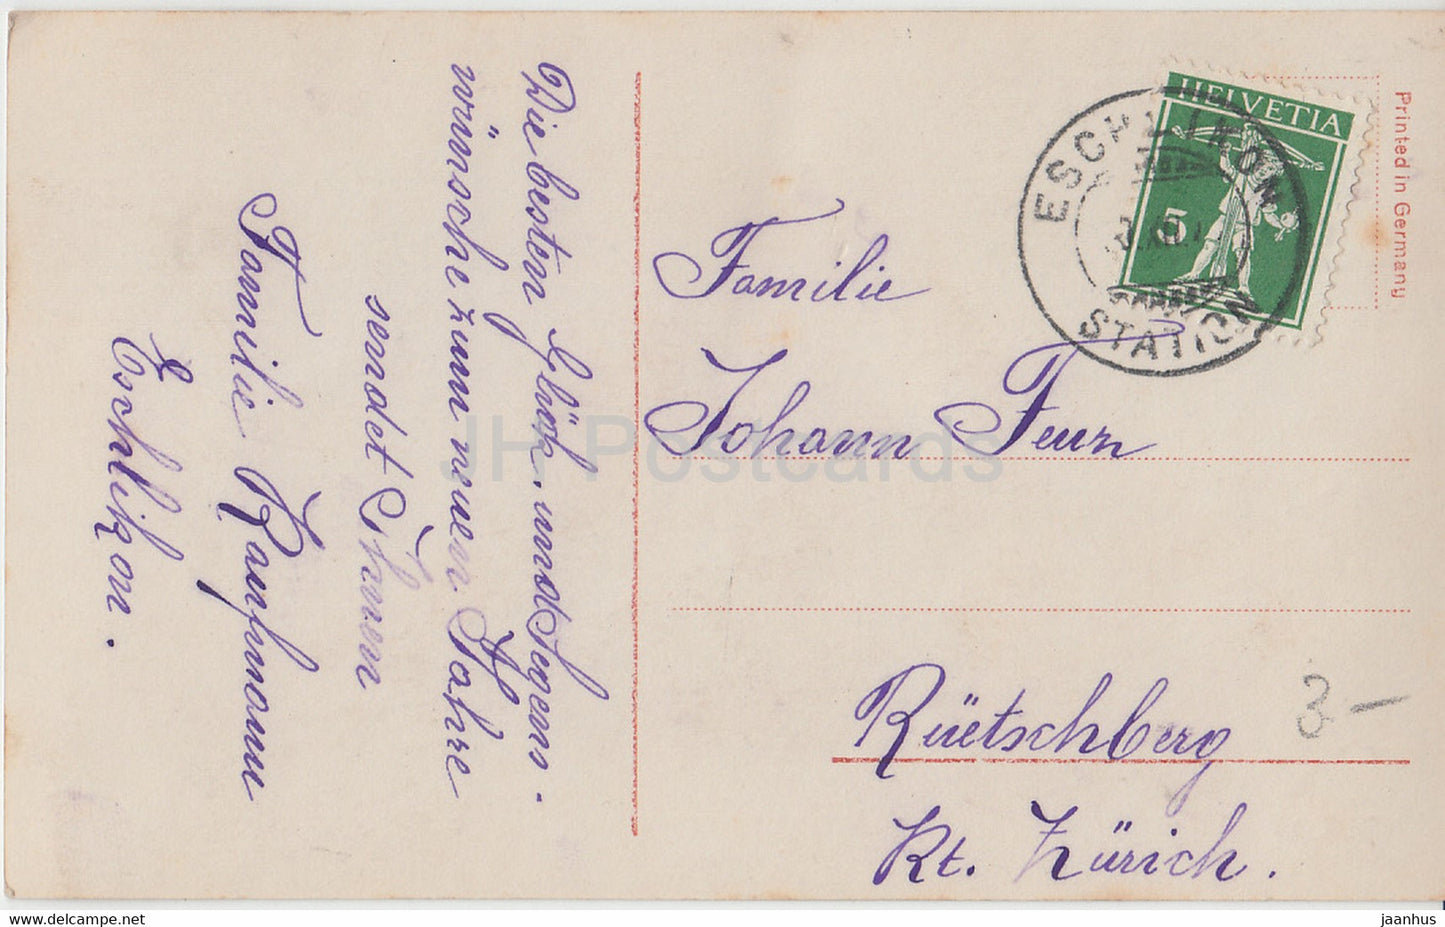 Die besten Glück- und Segens-
wünsche zum neuen Jahre
sendet Ihnen
Familie Kaufmann
Eschlikon.
Familie
Johann Feurer
Rüetschberg
Kt. Zürich.
HELVETIA
5
ESCHLIKON
STATION
Printed in Germany
3-
JH Postcards
jaanhus
www.hippostcard.com/store/jaanhus-cco